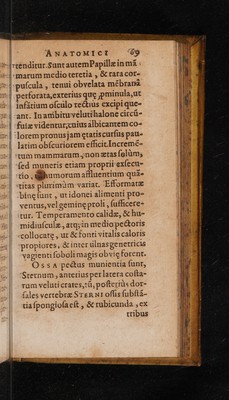 ANATOMICI 69
tenditur. Sunt autem Papillæ in mã
marum medio teretia, & rara cor-
puscula, tenui obvelata mẽbranâ
perforata, exterius quę pminula, ut
infãtium osculo tectius excipi que-
ant. In ambitu veluti halone circũ-
fusæ videntur, cuius albicantem co-
lorem pronus jam ętatis cursus pau-
latim obscuriorem efficit. Incremẽ-
tum mammarum, non ætas solùm,
sed muneris etiam proprii exsecu-
tio, humorum affluentium quã-
titas plurimùm variat. Efformatæ
binę sunt, ut idonei alimenti pro-
ventus, vel geminę proli, sufficere-
tur. Temperamento calidæ, & hu-
midiusculæ, atq; in medio pectoris
collocatę, ut & fonti vitalis caloris
propiores, & inter ulnas genetricis
vagienti soboli magis obvię forent.
OSSA pectus munientia sunt,
Sternum, anterius per latera costa-
rum veluti crates, tũ, posterius dor-
sales vertebræ STERNI ossis substã-
tia spongiosa est, & rubicunda, ex
tribus